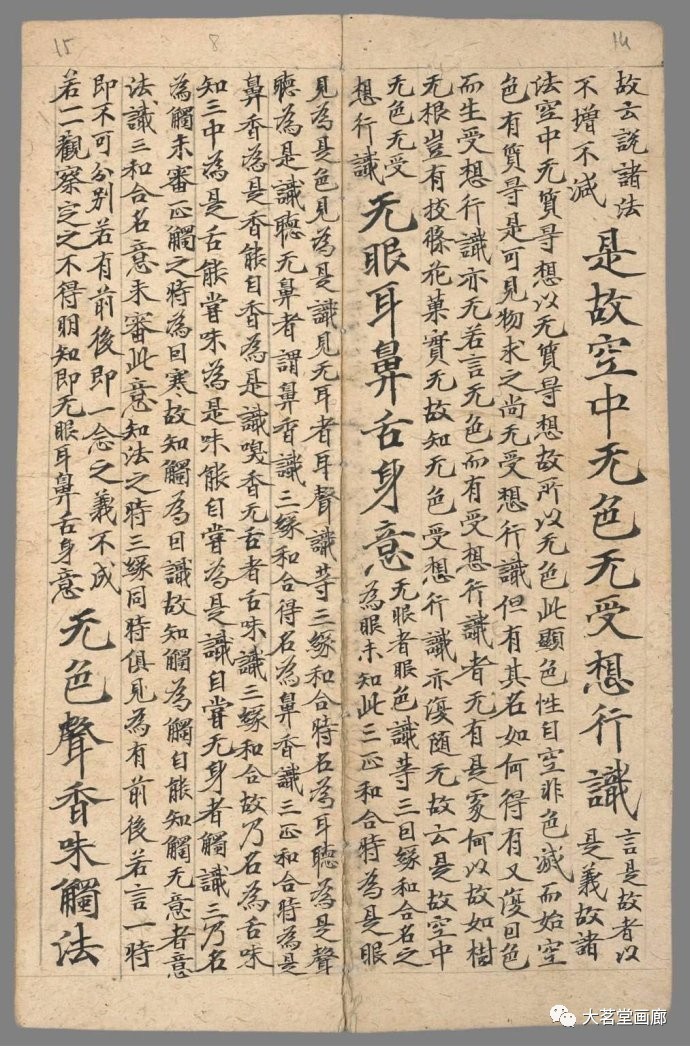 14
8
15
故云説諸法
不增不減
是故空中无色无受想行識
言是故者以
是義故諸
法空中无質导想以无質导想故所以无色此顯色性自空非色滅而始空
色有質导是可見物求之尚无受想行識但有其名如何得有又復因色
而生受想行識亦无若言无色而有受想行識者无有是處何以故如樹
无根豈有枝條花菓實无故知无色受想行識亦復隨无故云是故空中
无色无受
想行識
无眼耳鼻舌身意
无眼者眼色識等三因緣和合名之
為眼未知此三正和合時為是眼
見為是色見為是識見无耳者耳聲識等三緣和合時名為耳聽為是聲
聽為是識聽无鼻者謂鼻香識三緣和合得名為鼻香識三正和合時為是
鼻香為是香能自香為是識嗅香无舌者舌味識三緣和合故乃名為舌味
知三中為是舌能甞味為是味能自甞為是識自甞无身者觸識三乃名
為觸未審正觸之時為因寒故知觸為因識故知觸為觸自能知觸无意者意
法識三和合名意未審此意知法之時三緣同時俱見為有前後若言一時
即不可分別若有前後即一念之義不成
若二觀察定之不得明知即无眼耳鼻舌身意
无色聲香味觸法
大茗堂画廊